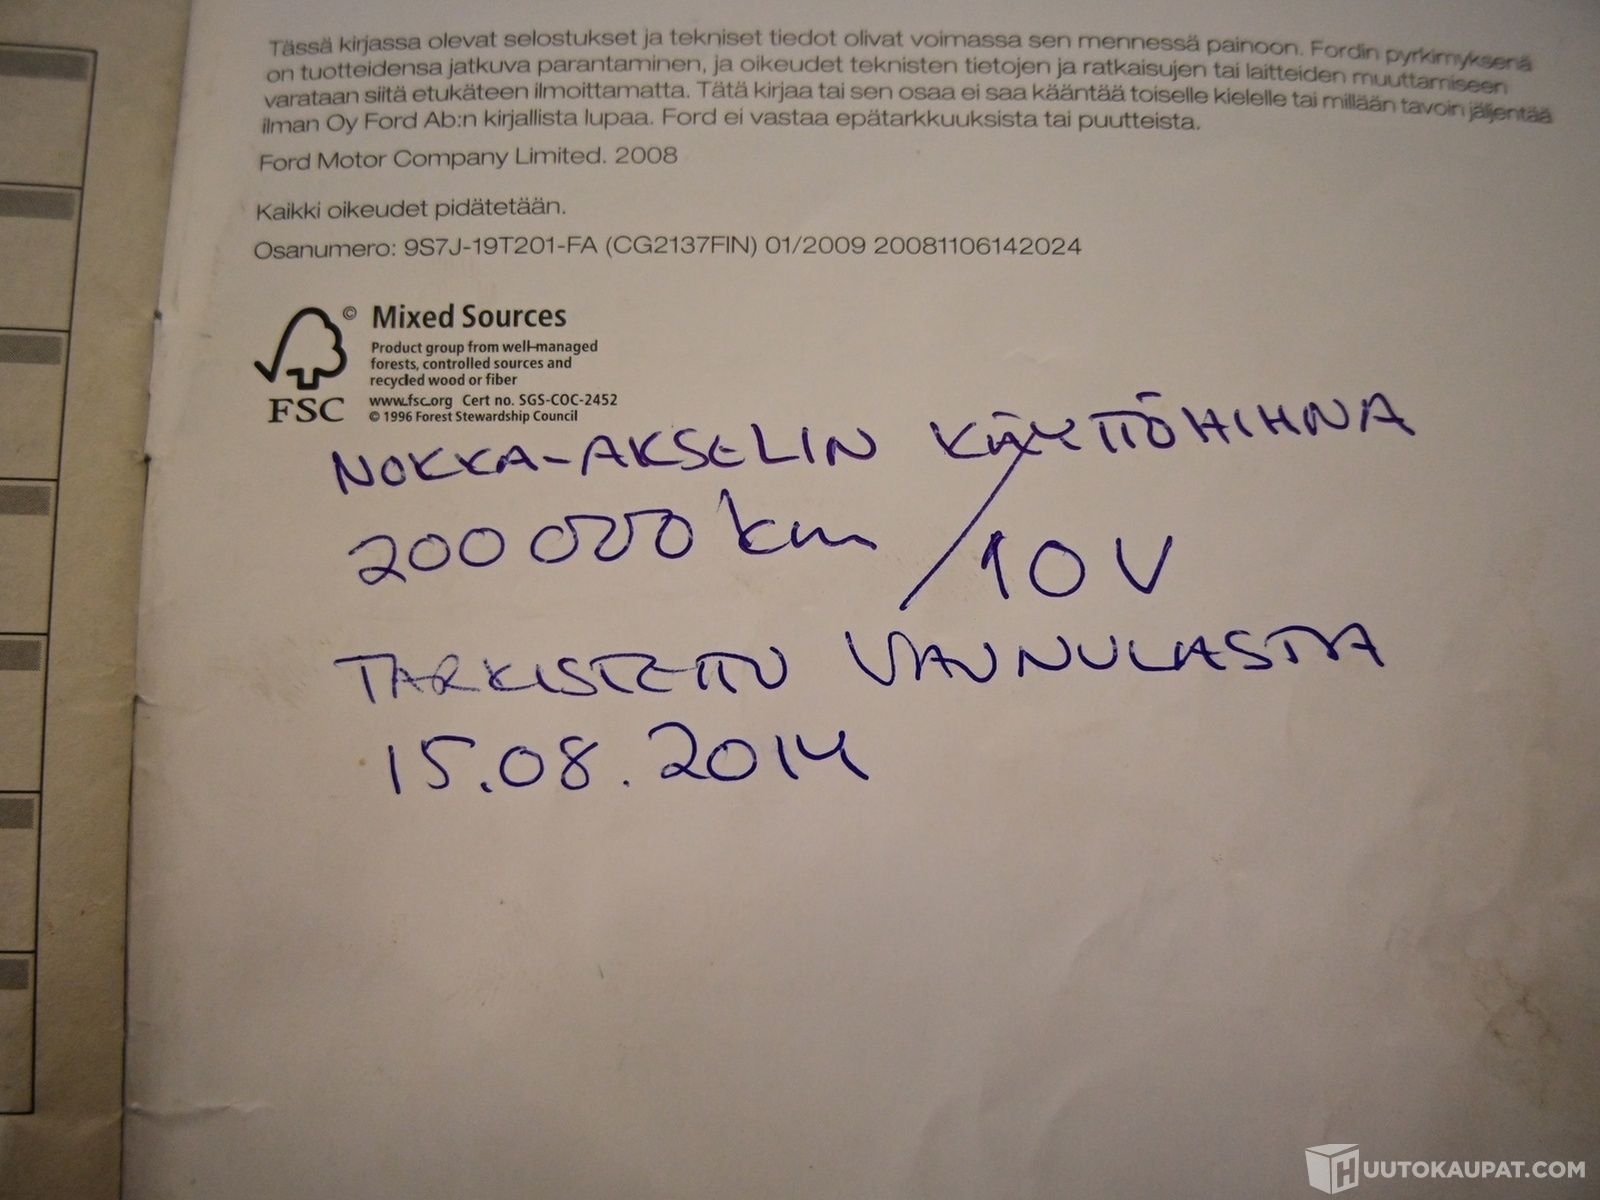 Tässä kirjassa olevat selostukset ja tekniset tiedot olivat voimassa sen mennessä painoon. Fordin pyrkimyksenä
on tuotteidensa jatkuva parantaminen, ja oikeudet teknisten tietojen ja ratkaisujen tai laitteiden muuttamiseen
varataan siitä etukäteen ilmoittamatta. Tätä kirjaa tai sen osaa ei saa kääntää toiselle kielelle tai millään tavoin jäljentää
ilman Oy Ford Ab:n kirjallista lupaa. Ford ei vastaa epätarkkuuksista tai puutteista.
Ford Motor Company Limited. 2008
Kaikki oikeudet pidätetään.
Osanumero: 9S7J-19T201-FA (CG2137FIN) 01/2009 20081106142024
© Mixed Sources
Product group from well-managed
forests, controlled sources and
recycled wood or fiber
www.fsc.org Cert no. SGS-COC-2452
© 1996 Forest Stewardship Council
FSC
NOKKA-AKSELIN KÄYTTÖHIHNA
200 000 km / 10 V
TARKISTETTU VAUNULASTA
15.08.2014
HUUTOKAUPAT.COM